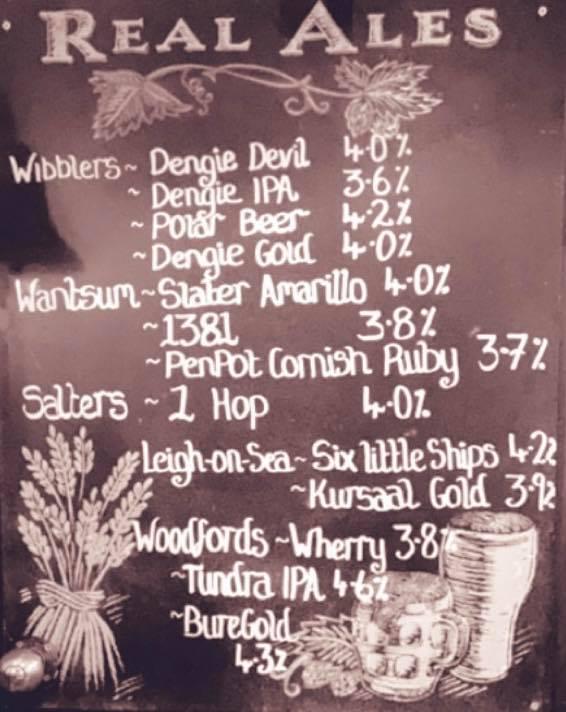 REAL ALES
Wibblers ~ Dengie Devil 4.0%
~ Dengie IPA 3.6%
~ Polar Beer 4.2%
~ Dengie Gold 4.0%
Wantsum ~ Slater Amarillo 4.0%
~ 1381 3.8%
~ PenPot Cornish Ruby 3.7%
Salters ~ 1 Hop 4.0%
Leigh-on-Sea ~ Six little Ships 4.2%
~ Kursaal Gold 3.9%
Woodfords ~ Wherry 3.8%
~ Tundra IPA 4.6%
~ BureGold
4.3%